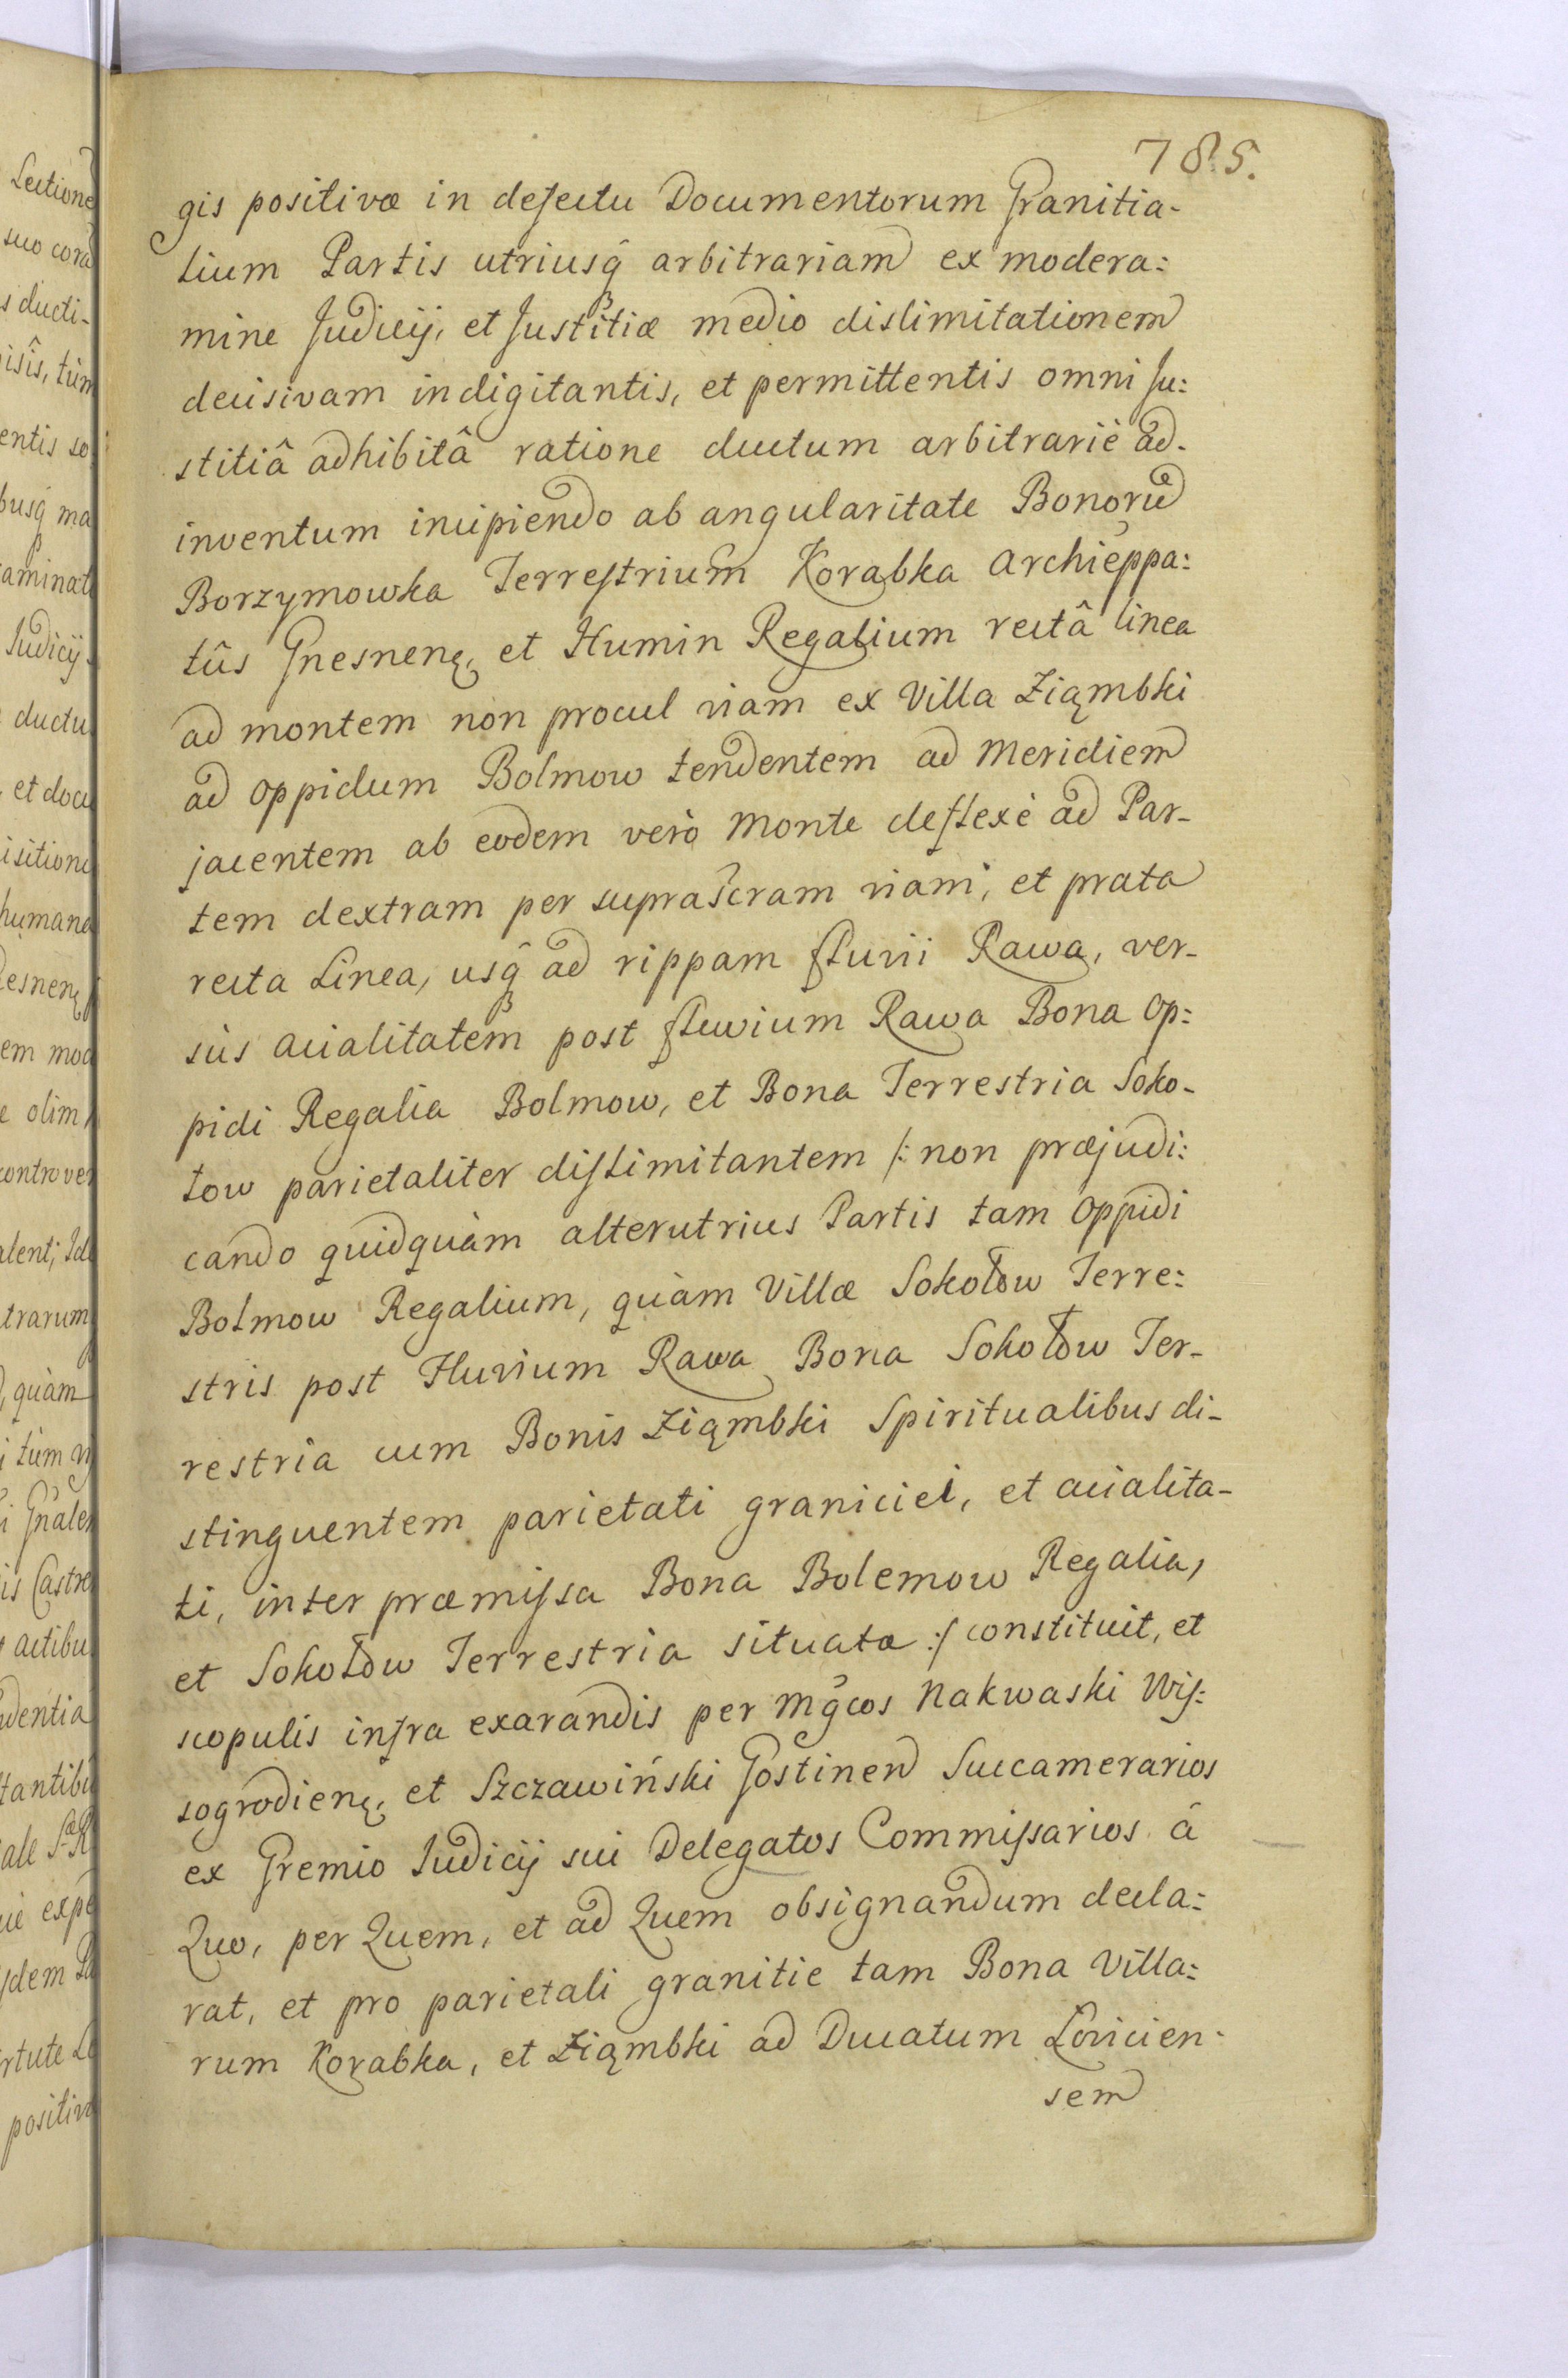 785.
gis positivæ in defectu Documentorum Granitia-
lium Partis utriusq̃ arbitrariam ex modera:
mine Judicij, et Justitiæ medio dislimitationem
decisivam indigitantis, et permittentis omni Ju:
stitiâ adhibitâ ratione ductum arbitrarie ad-
inventum incipiendo ab angularitate Bonorũ
Borzymowka Terrestrium Korabka Archieppa:
tûs Gnesnenę, et Humin Regalium rectâ linea
ad montem non procul viam ex Villa Ziąmbki
ad oppidum Bolmow tendentem ad Meridiem
jacentem ab eodem verò Monte deflexè ad Par-
tem dextram per suprascr̃am viam, et prata
recta Linea, usq̃ ad rippam fluvii Rawa, ver-
sùs acialitatem post fluvium Rawa Bona Op:
pidi Regalia Bolmow, et Bona Terrestria Soko-
low parietaliter dislimitantem /: non præjudi:
cando quidquàm alterutrius Partis tam Oppidi
Bolmow Regalium, quàm Villæ Sokołow Terre:
stris post Fluvium Rawa Bona Sokołow Ter-
restria cum Bonis Ziąmbki Spiritualibus di-
stinguentem parietati graniciei, et acialita-
ti, inter præmissa Bona Bolemow Regalia,
et Sokołow Terrestria situatæ :/ constituit, et
scopulis infra exarandis per Mg̃cos Nakwaski Wis:
sogrodienę, et Szczawiński Gostinen Succamerarios
ex Gremio Judicij sui Delegatos Commissarios â
Quo, per Quem, et ad Quem obsignandum decla:
rat, et pro parietali granitie tam Bona Villa:
rum Korabka, et Ziąmbki ad Ducatum Lovicien-
sem